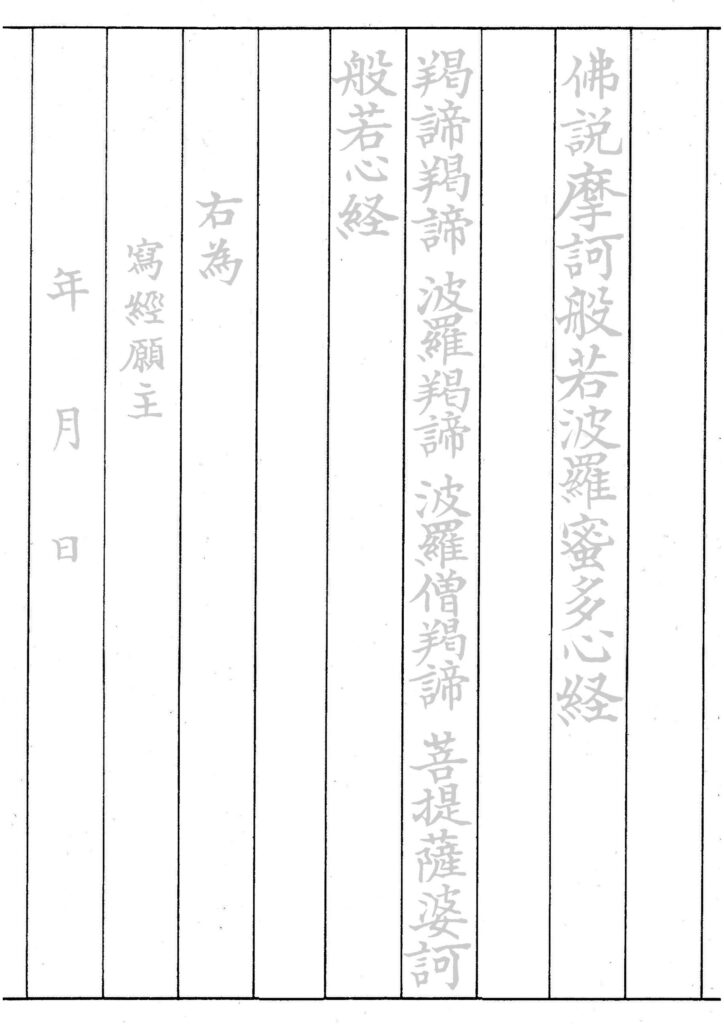 佛説摩訶般若波羅蜜多心経
羯諦羯諦 波羅羯諦 波羅僧羯諦 菩提薩婆訶
般若心経
右為
寫經願主
年 月 日